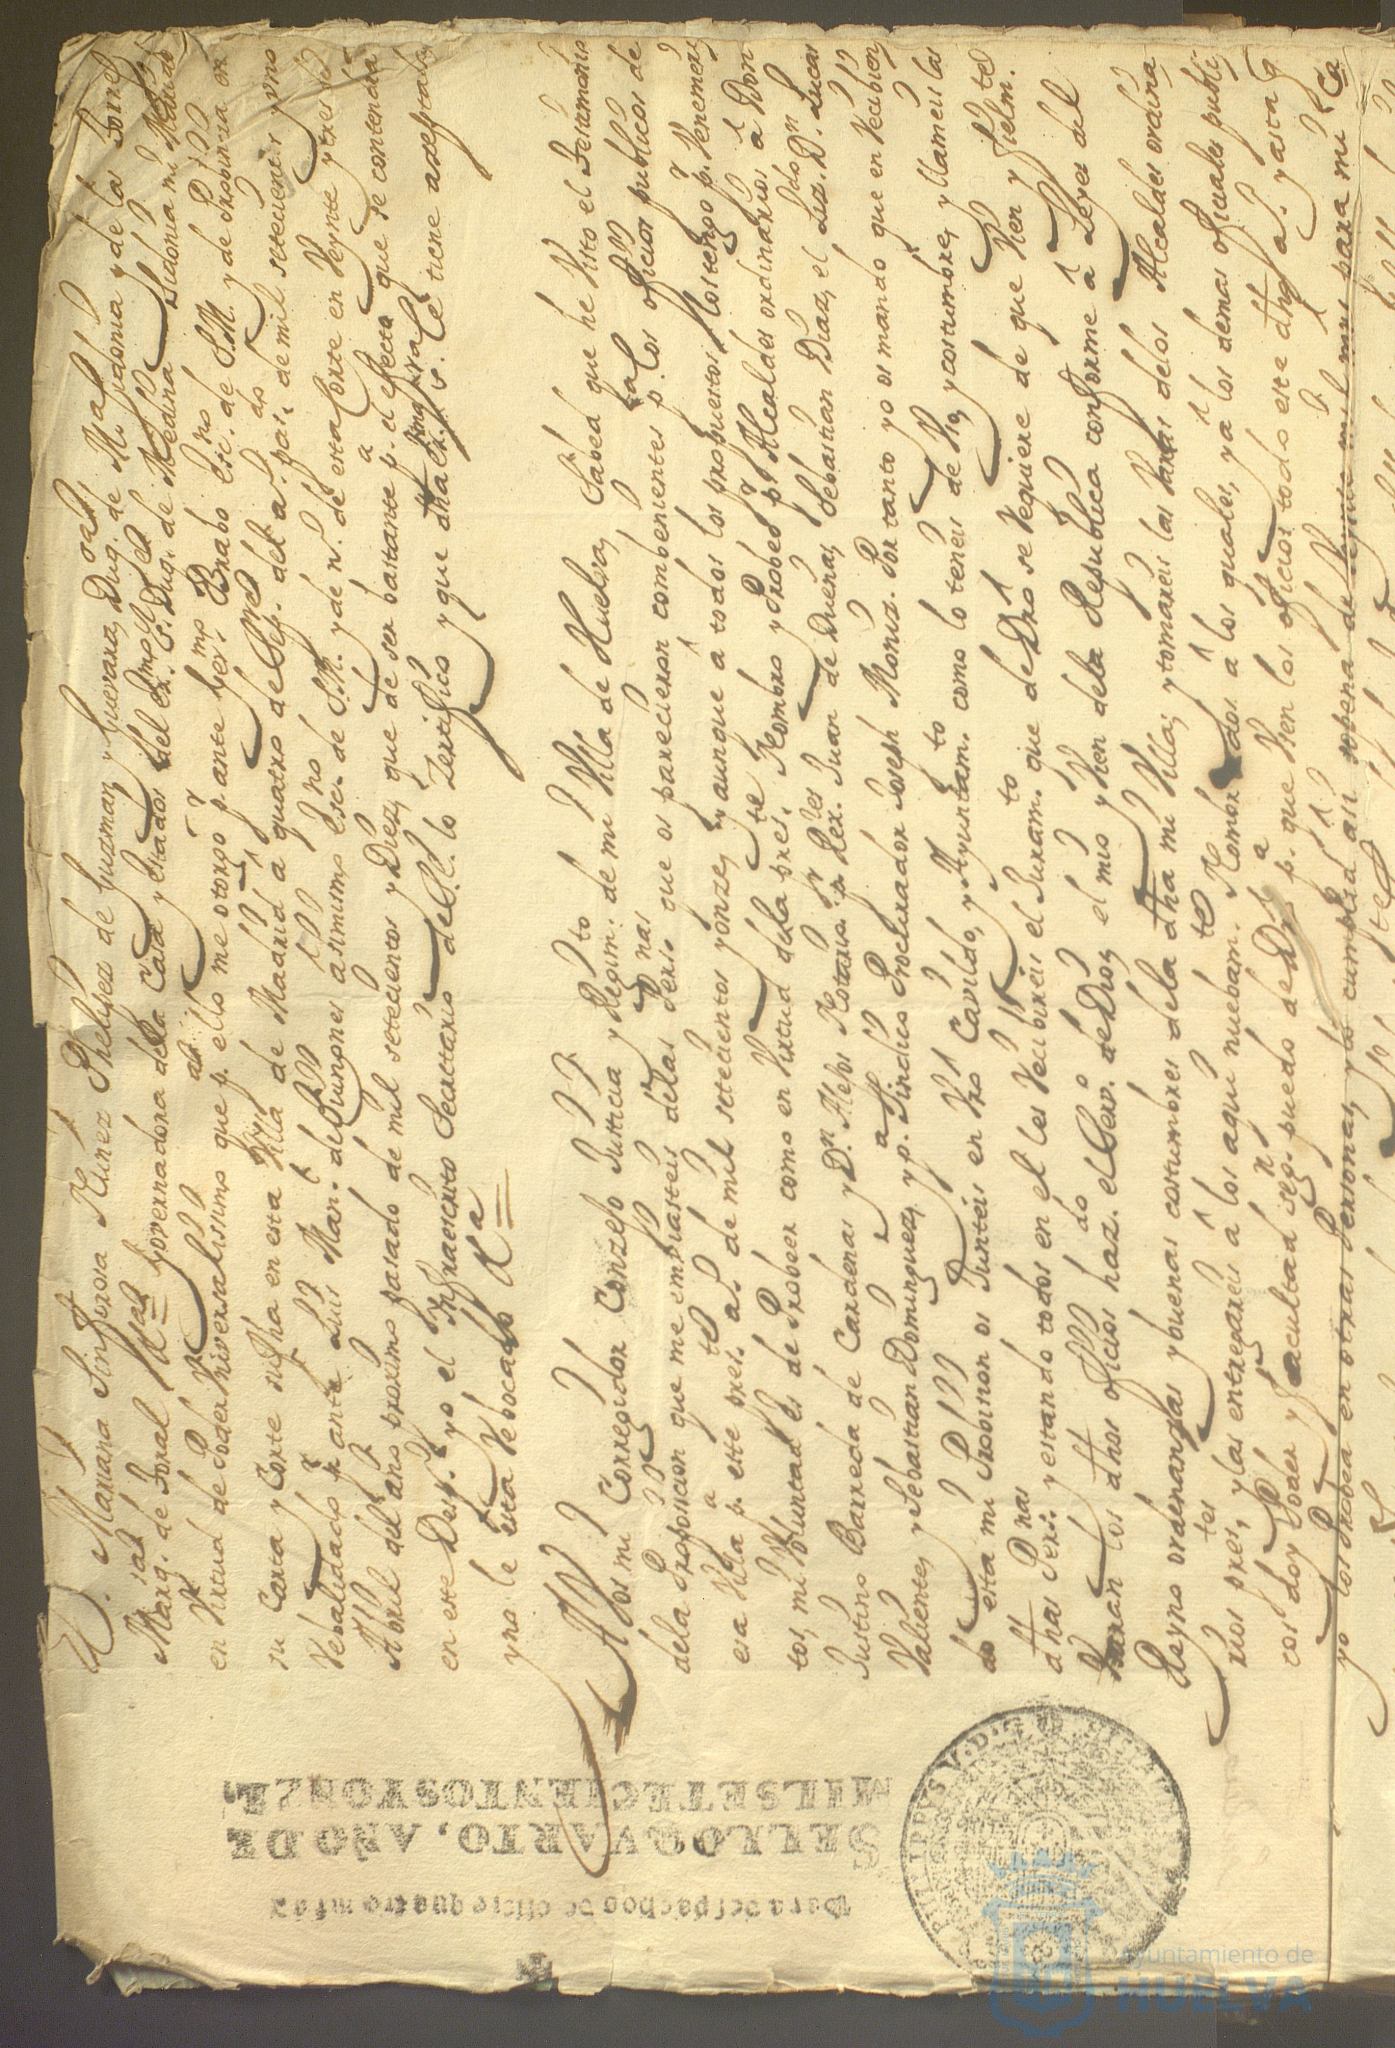 D. Mariana Sinforosa Núñez Phelipez de Guzman, y Guevara, Duq.sa de M.na Sidonia y de las Torres
Marq.sa de Toral
Governadora dela Casa y estados del ex.mo S.r Duq. de Medina Sidonia mi Marido
en Virtud de Poder Vniversalissimo que p.a ello me otorgó p.r ante Brabo ess.no de S.M. y de Provincia en
su Casa y Corte su fha en esta Villa de Madrid á quatro de Sep. del a.º pas.do de mil setecientos y uno
Revalidado p.r ante Luis Man.l de Quiñones asimismo ess.no de S.M. y de n.º de esta Corte en Veynte y tres de
Abril del año proximo pasado de mil setecientos y Diez, que de ser bastante p.a el efecto que se contendra
en este Desp.º yo el Infraescrito Secretario de S.E. lo Zertifico y que dha ex.ma s.ra le tiene azeptado
y no le esta Rebocado
A Vos mi Corregidor Conzejo Justicia y Regim.to de mi Villa de Huelva, Sabed que he Visto el Testamonio
dela Proposicion que me embiasteis delas Pers.nas que os parecieron combenientes p.a los oficios publicos de
esa Villa p.a este pres.te a.º de mil setecientos y onze, y aunque á todos los propuestos los tengo p.r Venemeri
tos, mi Voluntad es de Probeer como en Virtud dela pres.te Nombro y Probeo p.r Alcaldes ordinarios á Don
Justino Barreda de Cardenas y D.n Alejos Notario p.r Rex.res Juan de Dueñas, Sebastian Diaz, el Liz.do D.n Lucas
Valiente, y Sebastian Dominguez, y p.r Sindico Procurador Joseph Moniz. Por tanto yo os mando que en Recibien
do esta mi Probision os Junteis en Vro Cavildo, y Ayuntam.to como lo teneis de Vso, y costumbre, y llameis las
dhas Pers.nas y estando todos en el les Recibireis el Juram.to que de Dro se Requiere de que Vien y fielm.te
Vsaran los dhos oficios haz.do el Serv.º de Dios, el mio y Vien dela Republica conforme á Leyes del
Reyno ordenanzas y buenas costumbres dela dha mi Villa; y tomareis las Varas delos Alcaldes ordina
rios pres.tes, y las entregareis á los aqui nuebam.te Nombrados á los quales, y á los demas oficiales publi
cos doy Poder y facultad seg.n puedo de Dro p.a que Vsen los oficios todo este dho a.º y asta q.
yo los Probea en otras Personas, y lo cumplid asi sopena de Veynte mil mrs para mi Ca
Para despachos de oficio quatro mrs
SELLO QVARTO, AÑO DE
MIL SETECIENTOS Y ONZE,
PHILIPPVS V. D. G.
Ayuntamiento de
HUELVA